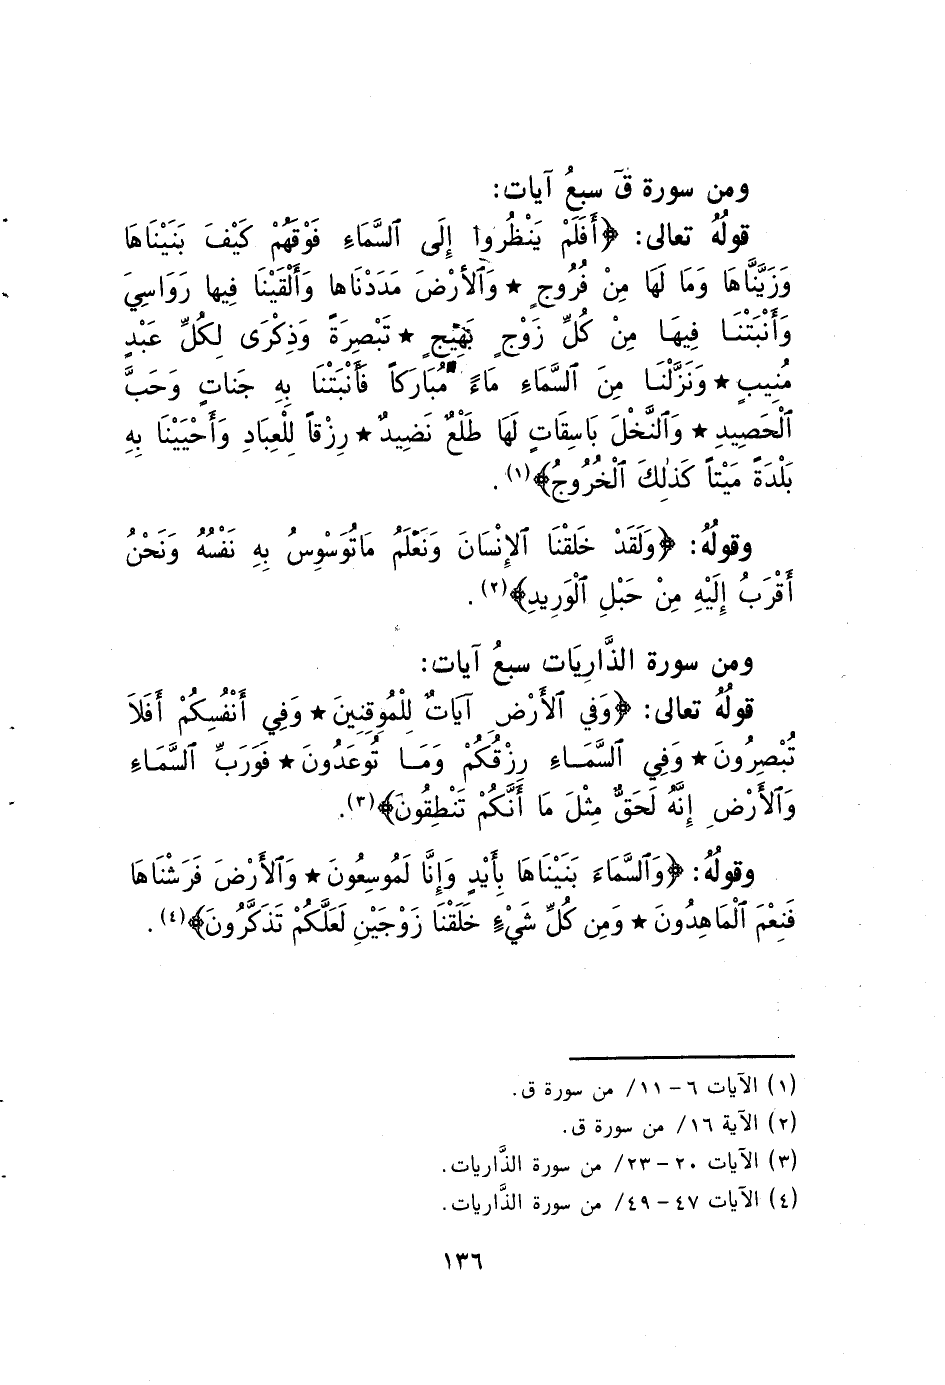 ومن سورة قۤ سبعُ آيات:
قولُهُ تعالى: ﴿أَفَلَمْ يَنْظُرُوا إِلَى ٱلسَّمَاءِ فَوْقَهُمْ كَيْفَ بَنَيْنَاهَا
وَزَيَّنَّاهَا وَمَا لَهَا مِنْ فُرُوجٍ ★ وَٱلأَرْضَ مَدَدْنَاها وَأَلْقَيْنَا فِيها رَوَاسِيَ
وَأَنْبَتْنَـا فِيهَـا مِنْ كُلِّ زَوْجٍ بَهِيْجٍ ★ تَبْصِرَةً وَذِكْرَى لِكُلِّ عَبْدٍ
مُنِيبٍ ★ وَنَزَّلْنَـا مِنَ ٱلسَّمَاءِ مَاءً مُبَارَكاً فَأَنْبَتْنَا بِهِ جَناتٍ وَحَبَّ
ٱلْحَصِيدِ ★ وَٱلنَّخْلَ بَاسِقَاتٍ لَهَا طَلْعٌ نَضِيدٌ ★ رِزْقاً لِلْعِبَادِ وَأَحْيَيْنَا بِهِ
بَلْدَةً مَيْتاً كَذٰلِكَ ٱلْخُرُوجُ﴾(١) .
وقولُهُ: ﴿وَلَقَدْ خَلَقْنَا ٱلإِنْسَانَ وَنَعْلَمُ مَاتُوَسْوِسُ بِهِ نَفْسُهُ وَنَحْنُ
أَقْرَبُ إِلَيْهِ مِنْ حَبْلِ ٱلْوَرِيدِ﴾(٢) .
ومن سورة الذَّارِيَات سبعُ آيات:
قولُهُ تعالى: ﴿وَفي ٱلأَرْضِ آيَاتٌ لِلْمُوقِنِينَ ★ وَفِي أَنْفُسِكُمْ أَفَلاَ
تُبْصِرُونَ ★ وَفِي ٱلسَّمَـاءِ رِزْقُكُمْ وَمَـا تُوعَدُونَ ★ فَوَرَبِّ ٱلسَّمَـاءِ
وَٱلأَرْضِ إِنَّهُ لَحَقٌّ مِثْلَ مَا أَنَّكُمْ تَنْطِقُونَ﴾(٣).
وقولُهُ: ﴿وَٱلسَّمَاءَ بَنَيْنَاهَا بِأَيْدٍ وَإِنَّا لَمُوسِعُونَ ★ وَٱلأَرْضَ فَرَشْنَاهَا
فَنِعْمَ ٱلْمَاهِدُونَ ★ وَمِن كُلِّ شَيْءٍ خَلَقْنَا زَوْجَيْنِ لَعَلَّكُمْ تَذَكَّرُونَ﴾(٤) .
(١) الآيات ٦ – ١١/ من سورة ق.
(٢) الآية ١٦/ من سورة ق.
(٣) الآيات ٢٠ – ٢٣/ من سورة الذَّاريات.
(٤) الآيات ٤٧ – ٤٩/ من سورة الذَّاريات.
١٣٦